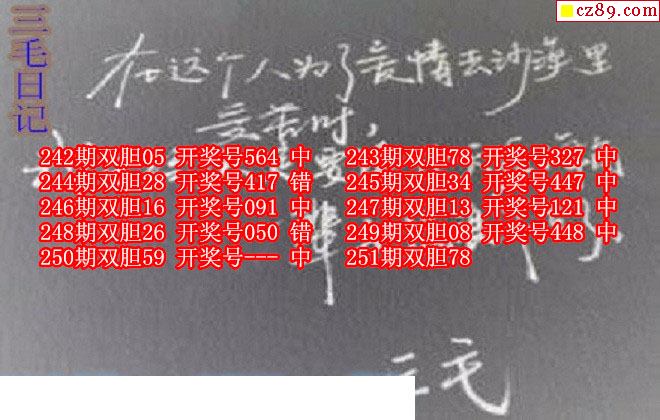 三毛日记
cz89.com
在这个人为了爱情去沙漠里
受苦时，
242期双胆05 开奖号564 中 243期双胆78 开奖号327 中
244期双胆28 开奖号417 错 245期双胆34 开奖号447 中
246期双胆16 开奖号091 中 247期双胆13 开奖号121 中
248期双胆26 开奖号050 错 249期双胆08 开奖号448 中
250期双胆59 开奖号--- 中 251期双胆78
三毛